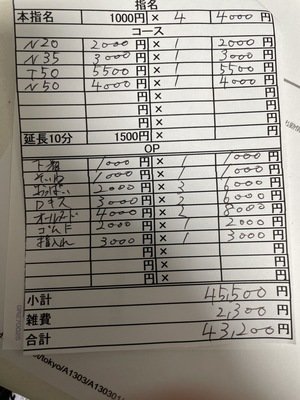 指名
本指名 1000円 × 4 4000円
コース
N20 2000円 × 1 2000円
N35 3000円 × 1 3000円
T50 5500円 × 1 5500円
N50 4000円 × 1 4000円
円 × 円
円 × 円
円 × 円
延長10分 1500円 × 円
OP
下着 1000円 × 1 1000円
1000円 × 1 1000円
おっぱい 2000円 × 3 6000円
Dキス 3000円 × 2 6000円
オールヌード 4000円 × 2 8000円
2000円 × 1 2000円
指入れ 3000円 × 1 3000円
円 × 円
円 × 円
円 × 円
小計 45,500円
雑費 2,300円
合計 43,200円
/tokyo/A1303/A13030